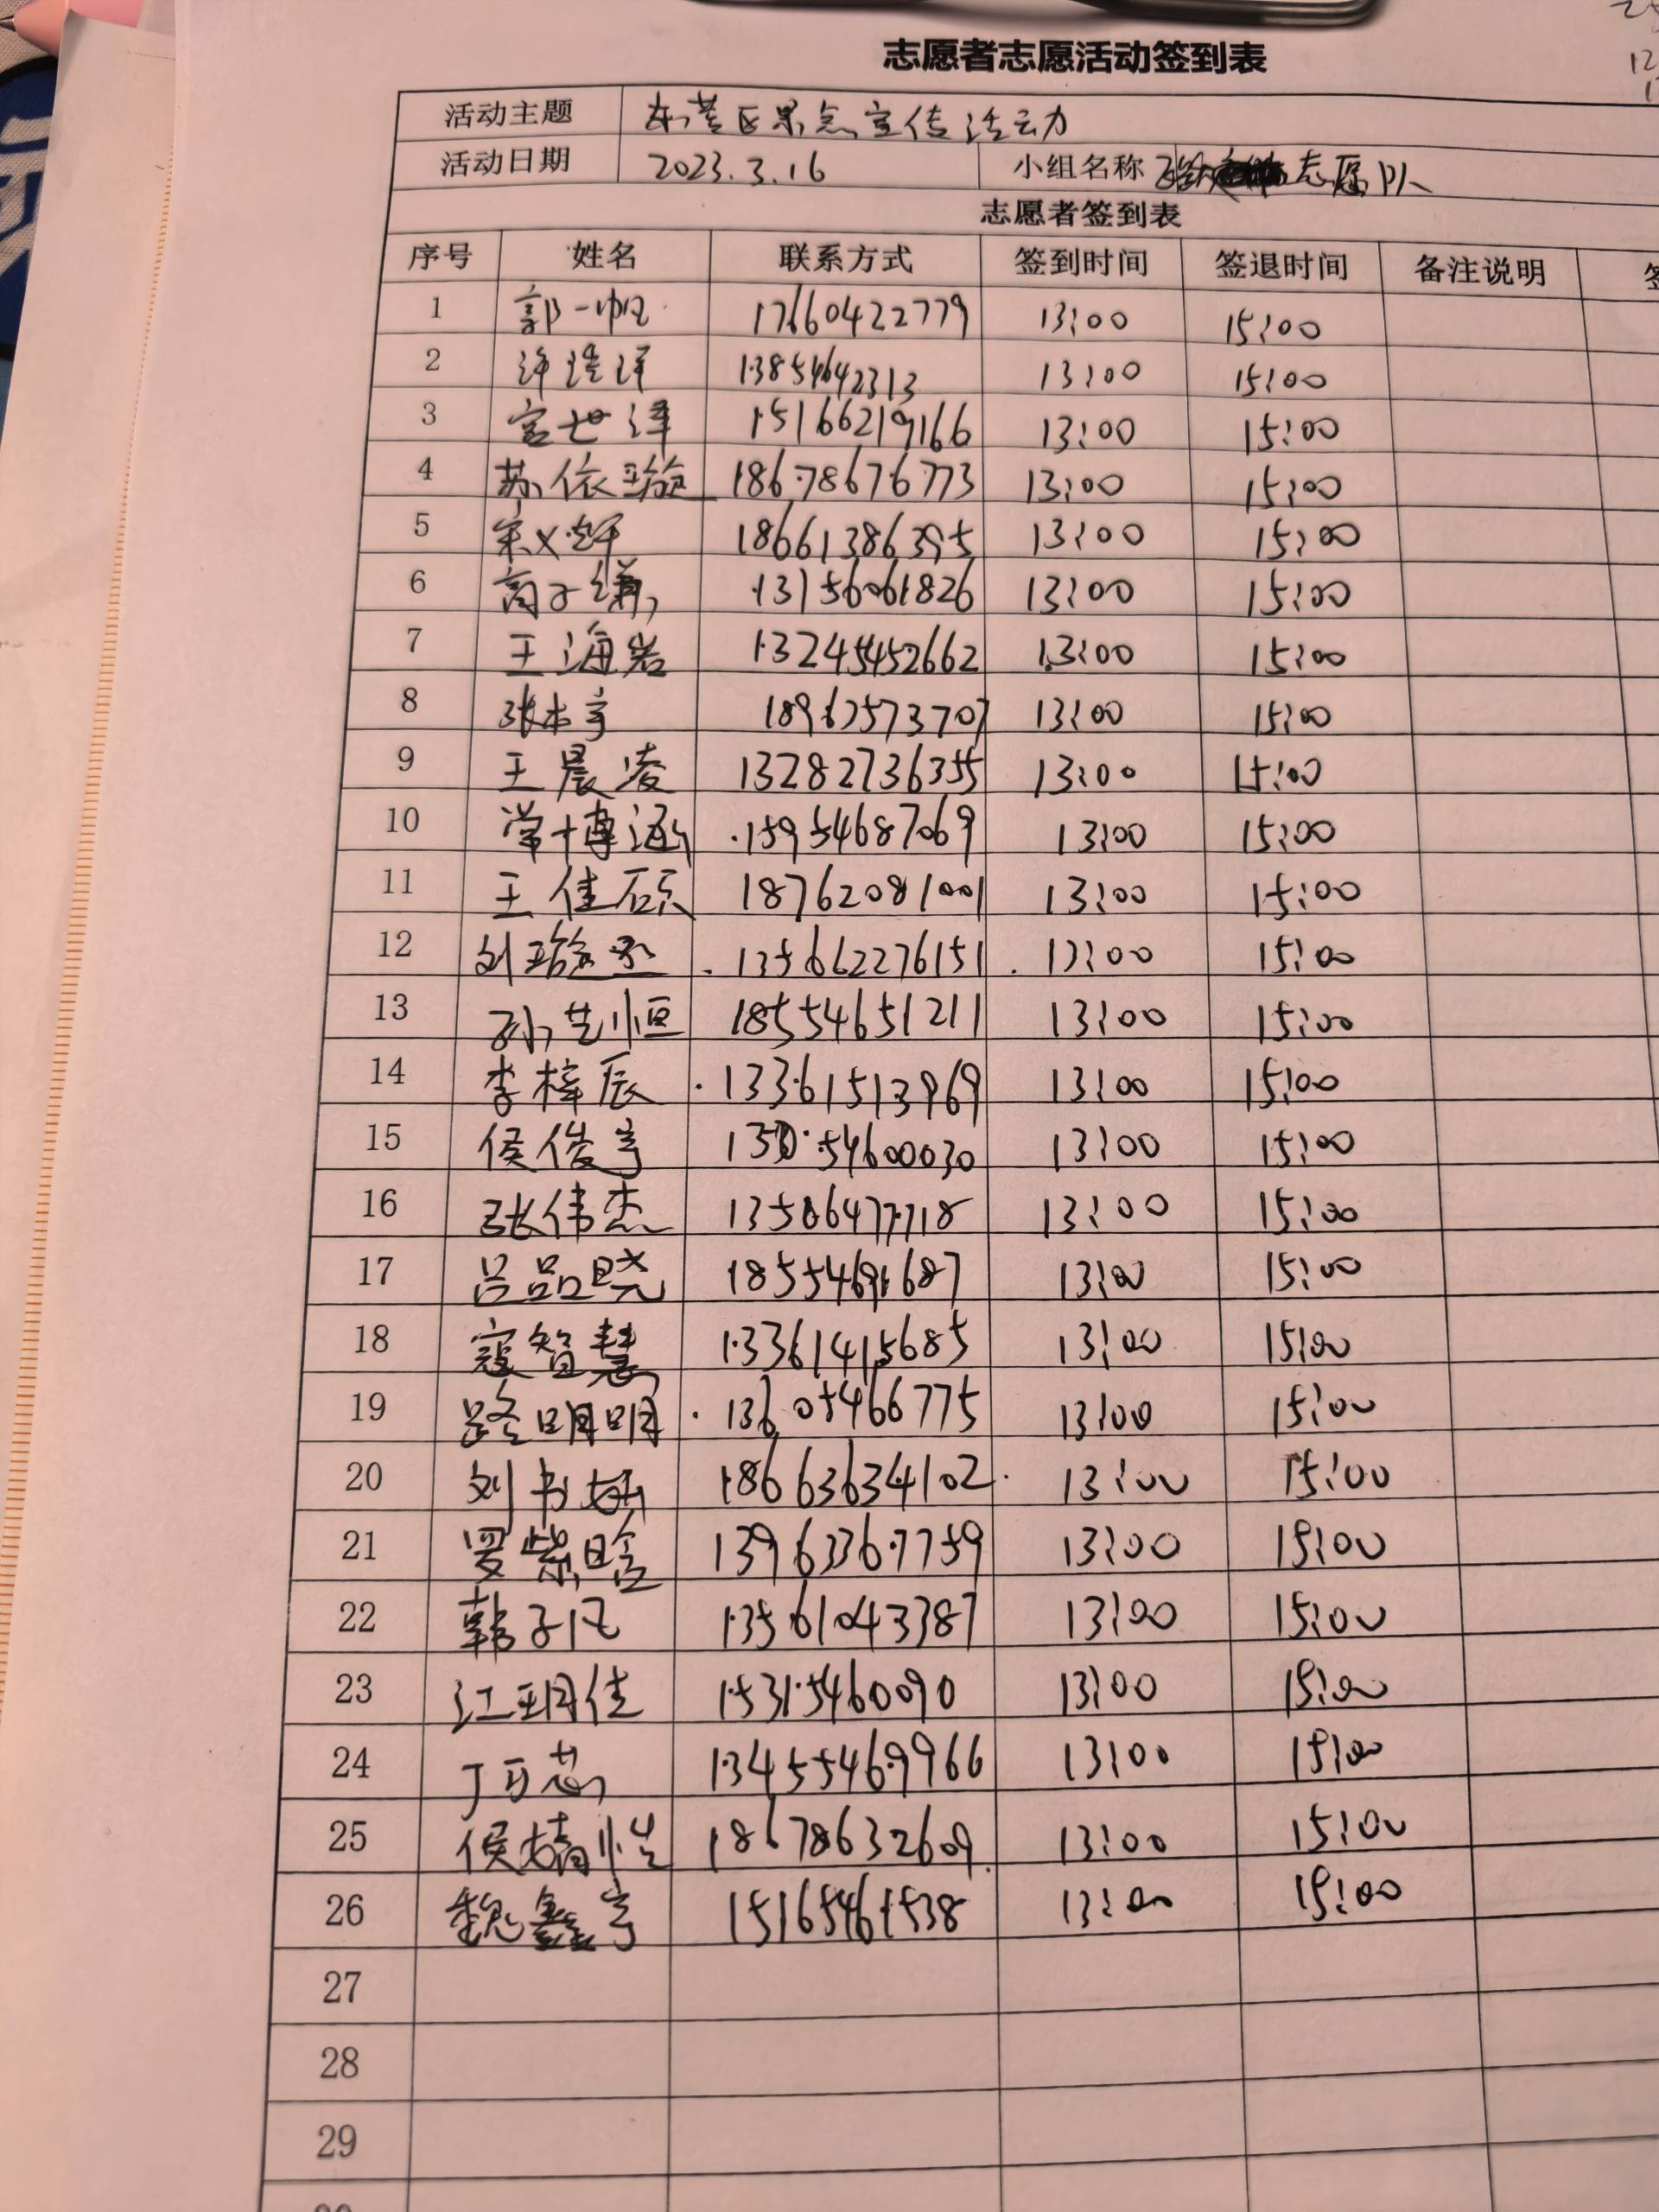 志愿者志愿活动签到表
活动主题 东营区景点宣传活动
活动日期 2023.3.16 小组名称 志愿队
志愿者签到表
序号 姓名 联系方式 签到时间 签退时间 备注说明
1 郭一帆 17660422779 13:00 15:00
2 13854642313 13:00 15:00
3 宫世泽 15166219166 13:00 15:00
4 苏依璇 18678676773 13:00 15:00
5 宋义辉 18661386395 13:00 15:00
6 商子谦 13156061826 13:00 15:00
7 王海岩 13245452662 13:00 15:00
8 张本宇 18962573707 13:00 15:00
9 王晨凌 13282736355 13:00 15:00
10 常博涵 15954687069 13:00 15:00
11 王佳硕 18762081001 13:00 15:00
12 刘璇 135662276151 13:00 15:00
13 孙艺恒 18554651211 13:00 15:00
14 李梓辰 13361513969 13:00 15:00
15 侯俊宇 13:00 15:00
16 张伟杰 13506477718 13:00 15:00
17 吕品晓 13:00 15:00
18 寇智慧 13361415685 13:00 15:00
19 路明明 13605466775 13:00 15:00
20 刘书妍 18663634102 13:00 15:00
21 罗紫晗 13963367759 13:00 15:00
22 韩子凡 13561043387 13:00 15:00
23 江玥佳 15315460090 13:00 15:00
24 丁可芯 13455469966 13:00 15:00
25 侯婧怡 18678632609 13:00 15:00
26 魏鑫宇 15165461538 13:00 15:00
27
28
29